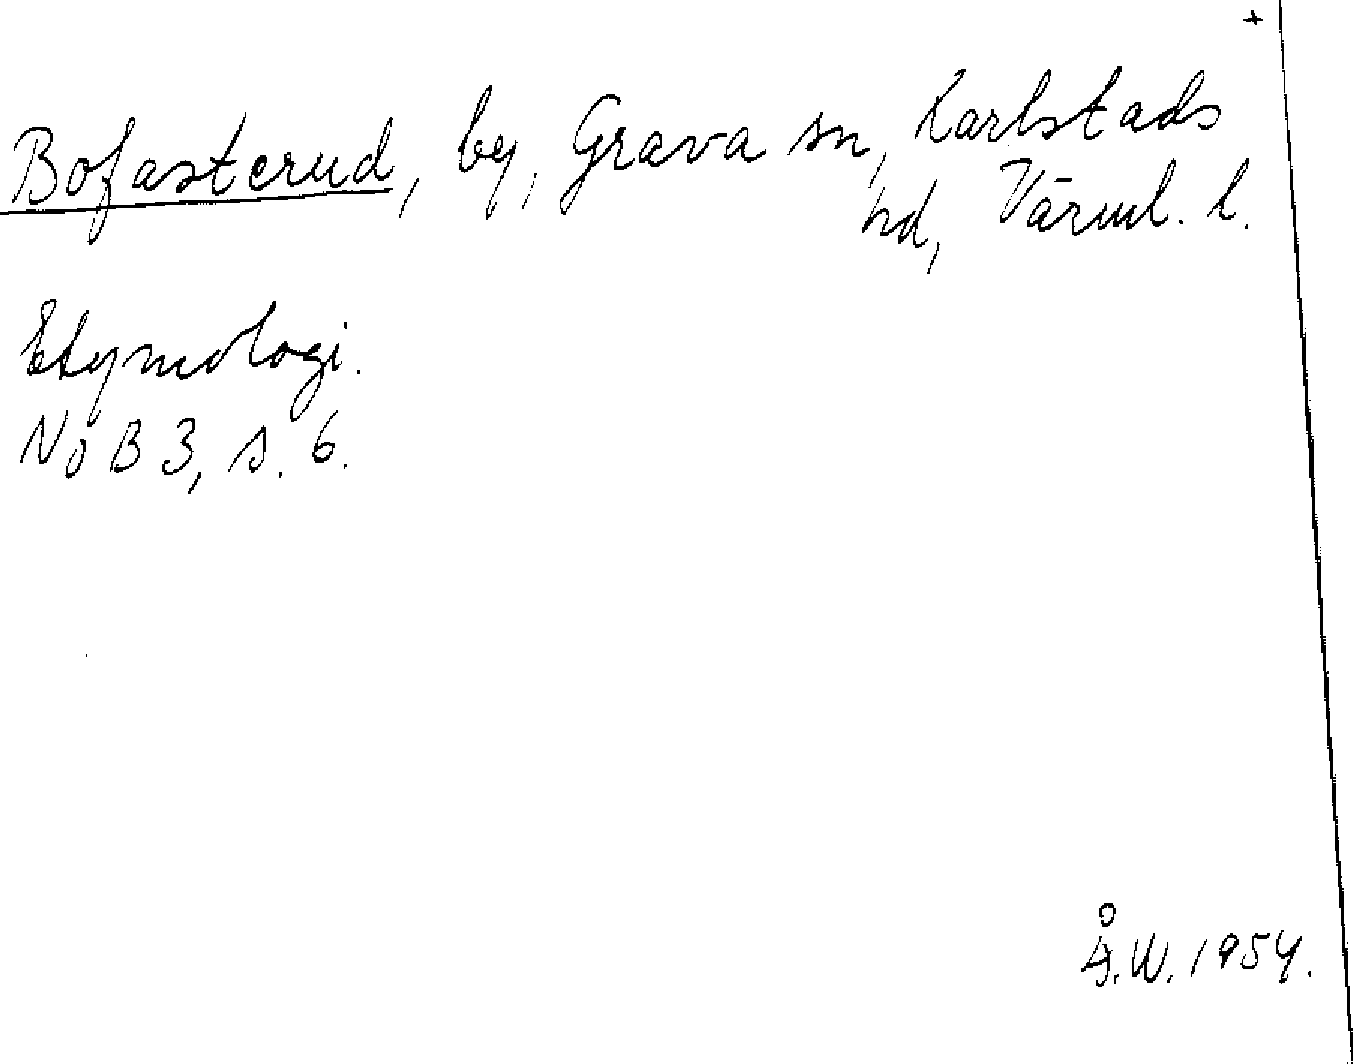 +
Bofasterud, by, Grava sn, Karlstads
hd, Värml. l.
Etymologi.
NoB 3, s. 6.
Å.W. 1954.